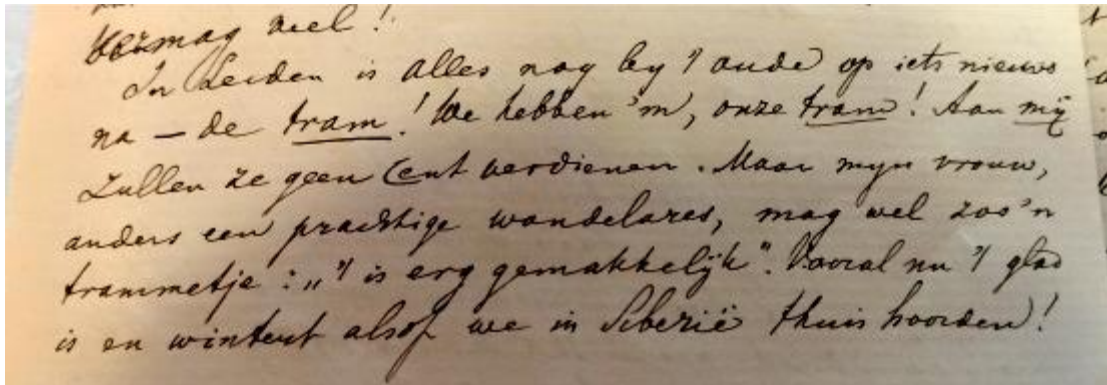 vermag veel!
In Leiden is alles nog by 't oude op iets nieuws
na — de tram! We hebben 'm, onze tram! Aan mij
zullen ze geen Cent verdienen. Maar mijn vrouw,
anders een prachtige wandelares, mag wel zoo'n
trammetje: „'t is erg gemakkelijk". Vooral nu 't glad
is en wintert alsof we in Siberië thuis hoorden!